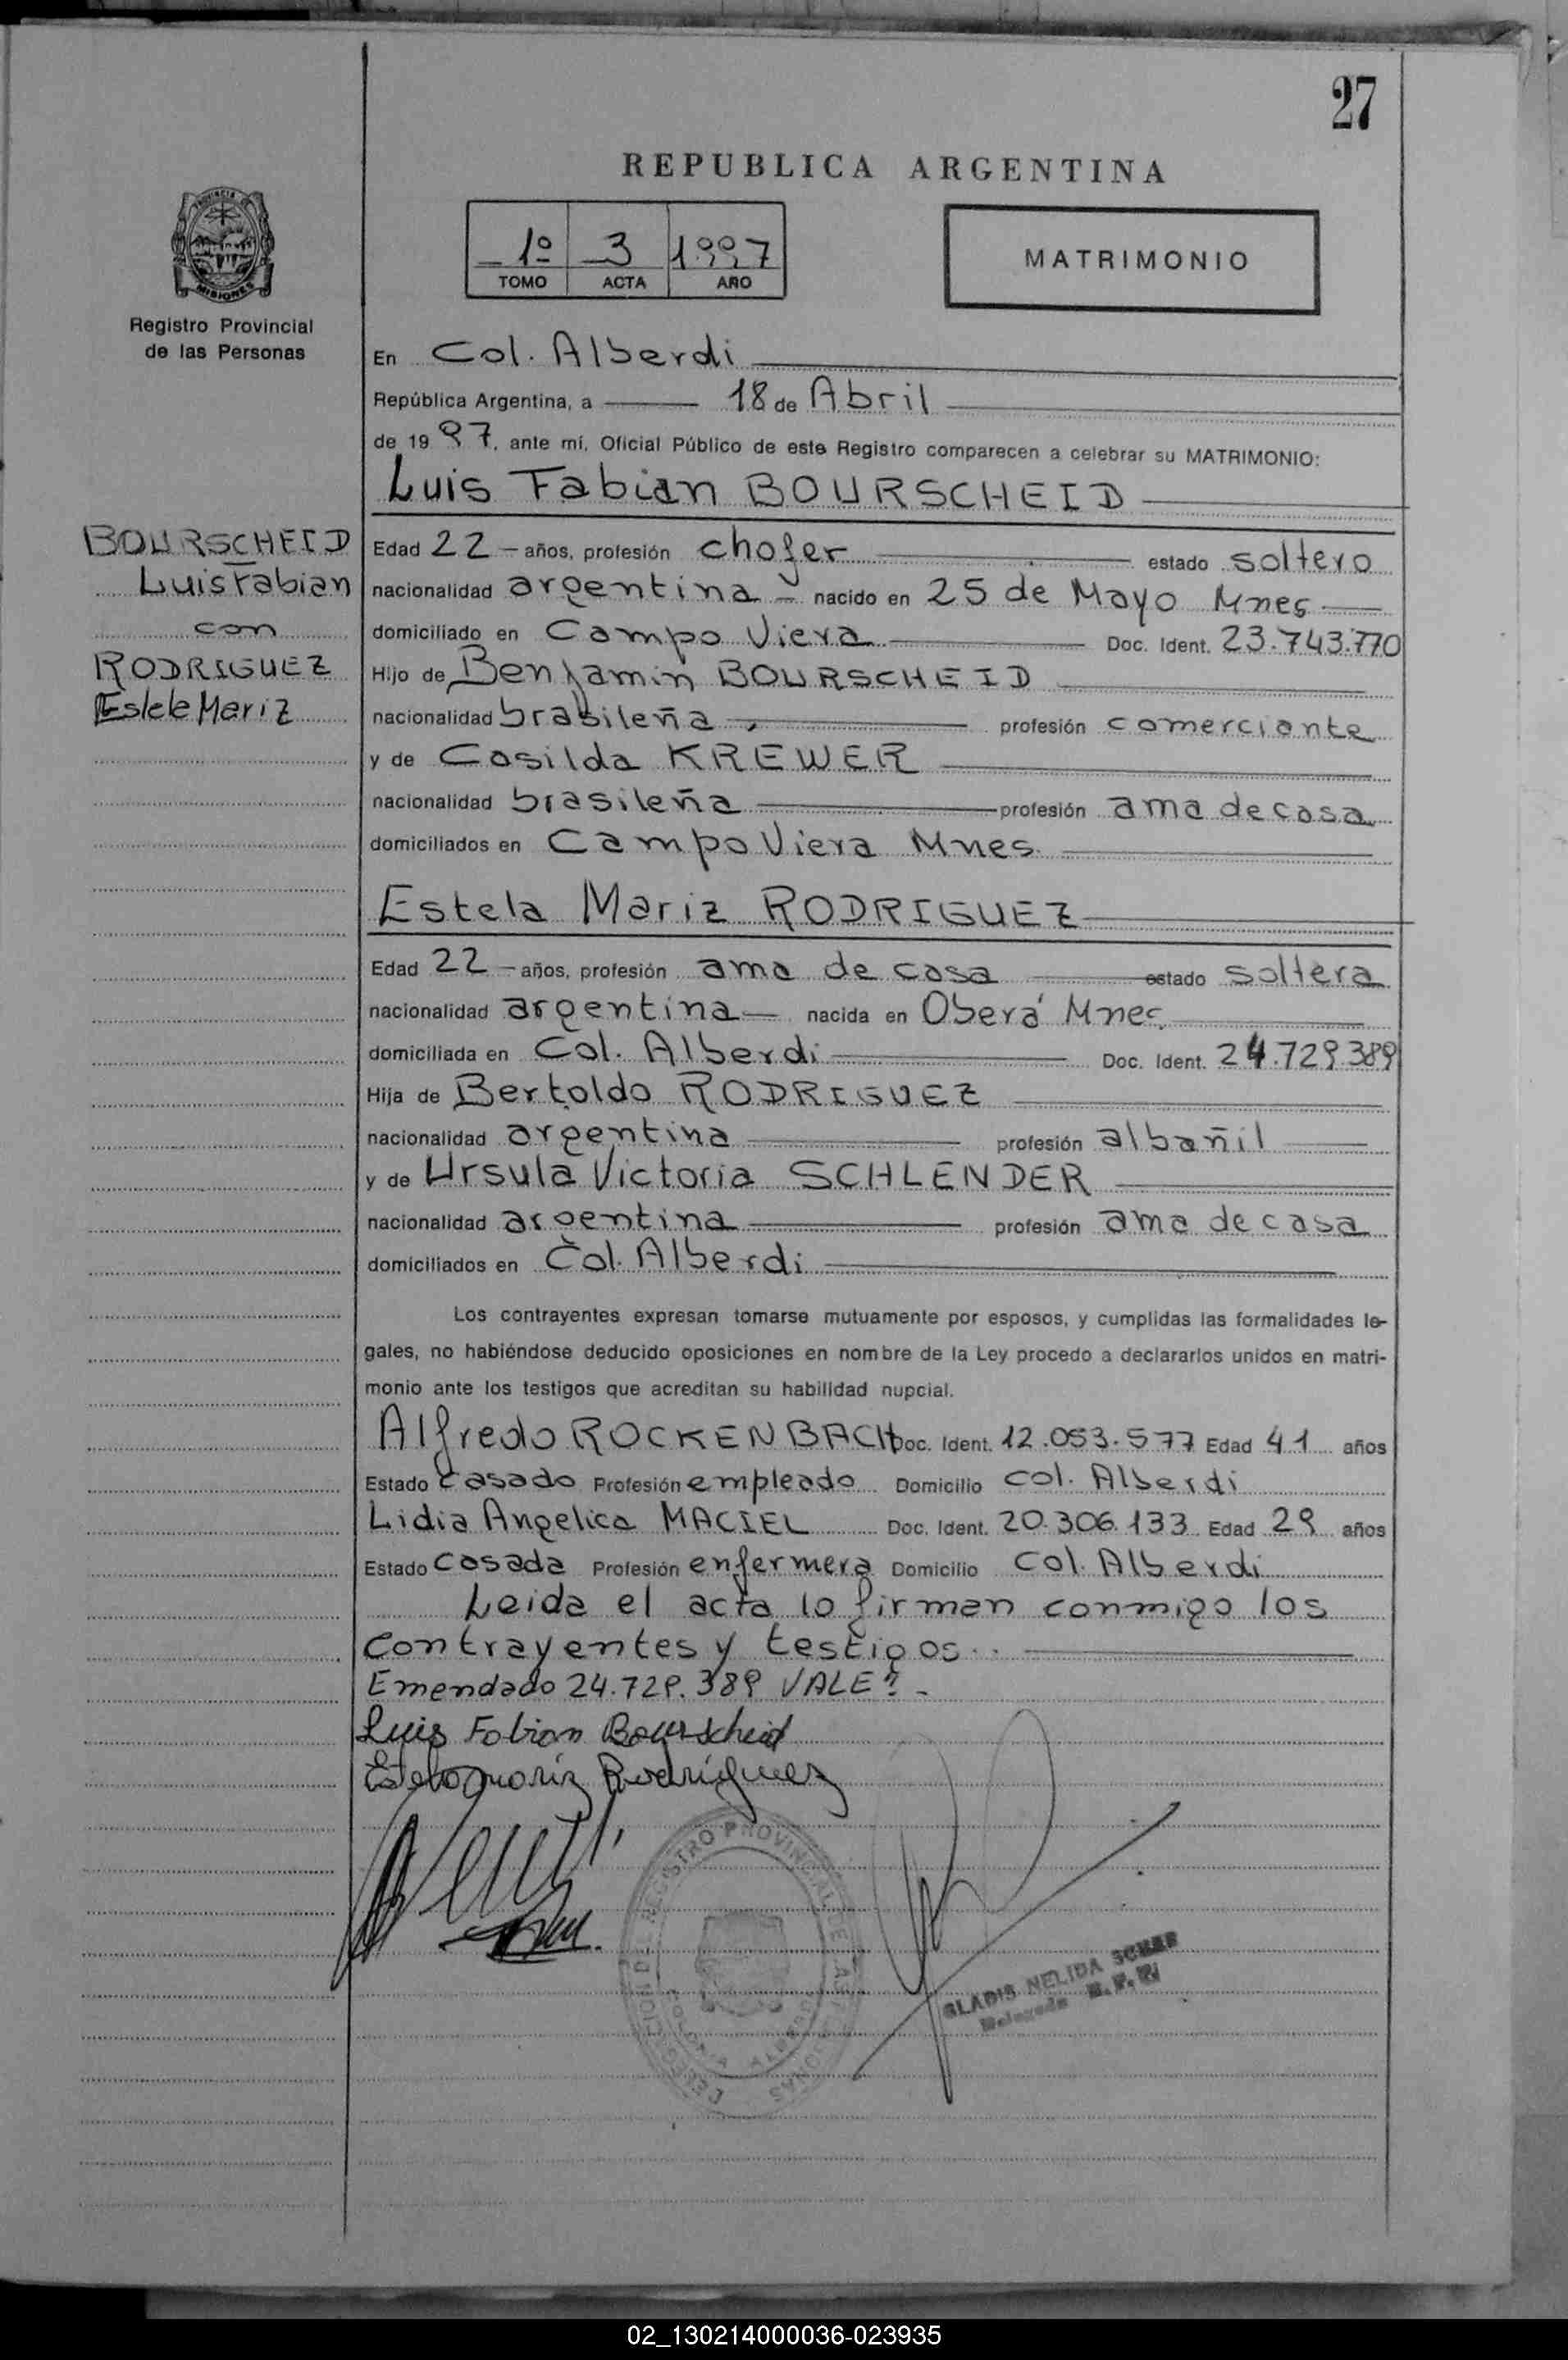 27
REPUBLICA ARGENTINA
1º 3 1997
TOMO ACTA AÑO
MATRIMONIO
PROVINCIA DE
MISIONES
Registro Provincial
de las Personas
En Col. Alberdi
República Argentina, a 18 de Abril
de 1997, ante mí, Oficial Público de este Registro comparecen a celebrar su MATRIMONIO:
Luis Fabian BOURSCHEID
BOURSCHEID
Luis Fabian
con
RODRIGUEZ
Estela Mariz
Edad 22 años, profesión chofer estado soltero
nacionalidad argentina nacido en 25 de Mayo Mnes
domiciliado en Campo Viera Doc. Ident. 23.743.770
Hijo de Benjamin BOURSCHEID
nacionalidad brasileña profesión comerciante
y de Casilda KREWER
nacionalidad brasileña profesión ama de casa
domiciliados en Campo Viera Mnes.
Estela Mariz RODRIGUEZ
Edad 22 años, profesión ama de casa estado soltera
nacionalidad argentina nacida en Oberá Mnes
domiciliada en Col. Alberdi Doc. Ident. 24.729.389
Hija de Bertoldo RODRIGUEZ
nacionalidad argentina profesión albañil
y de Ursula Victoria SCHLENDER
nacionalidad argentina profesión ama de casa
domiciliados en Col. Alberdi
Los contrayentes expresan tomarse mutuamente por esposos, y cumplidas las formalidades le-
gales, no habiéndose deducido oposiciones en nombre de la Ley procedo a declararlos unidos en matri-
monio ante los testigos que acreditan su habilidad nupcial.
Alfredo ROCKENBACH Doc. Ident. 12.053.577 Edad 41 años
Estado casado Profesión empleado Domicilio Col. Alberdi
Lidia Angelica MACIEL Doc. Ident. 20.306.133 Edad 29 años
Estado casada Profesión enfermera Domicilio Col. Alberdi
Leida el acta lo firman conmigo los
contrayentes y testigos..
Emendado 24.729.389 VALE
Luis Fabian Bourscheid
Estela Mariz Rodriguez
DIRECCION DEL REGISTRO PROVINCIAL DE LAS PERSONAS
GLADIS NELIDA
Delegada
02_130214000036-023935